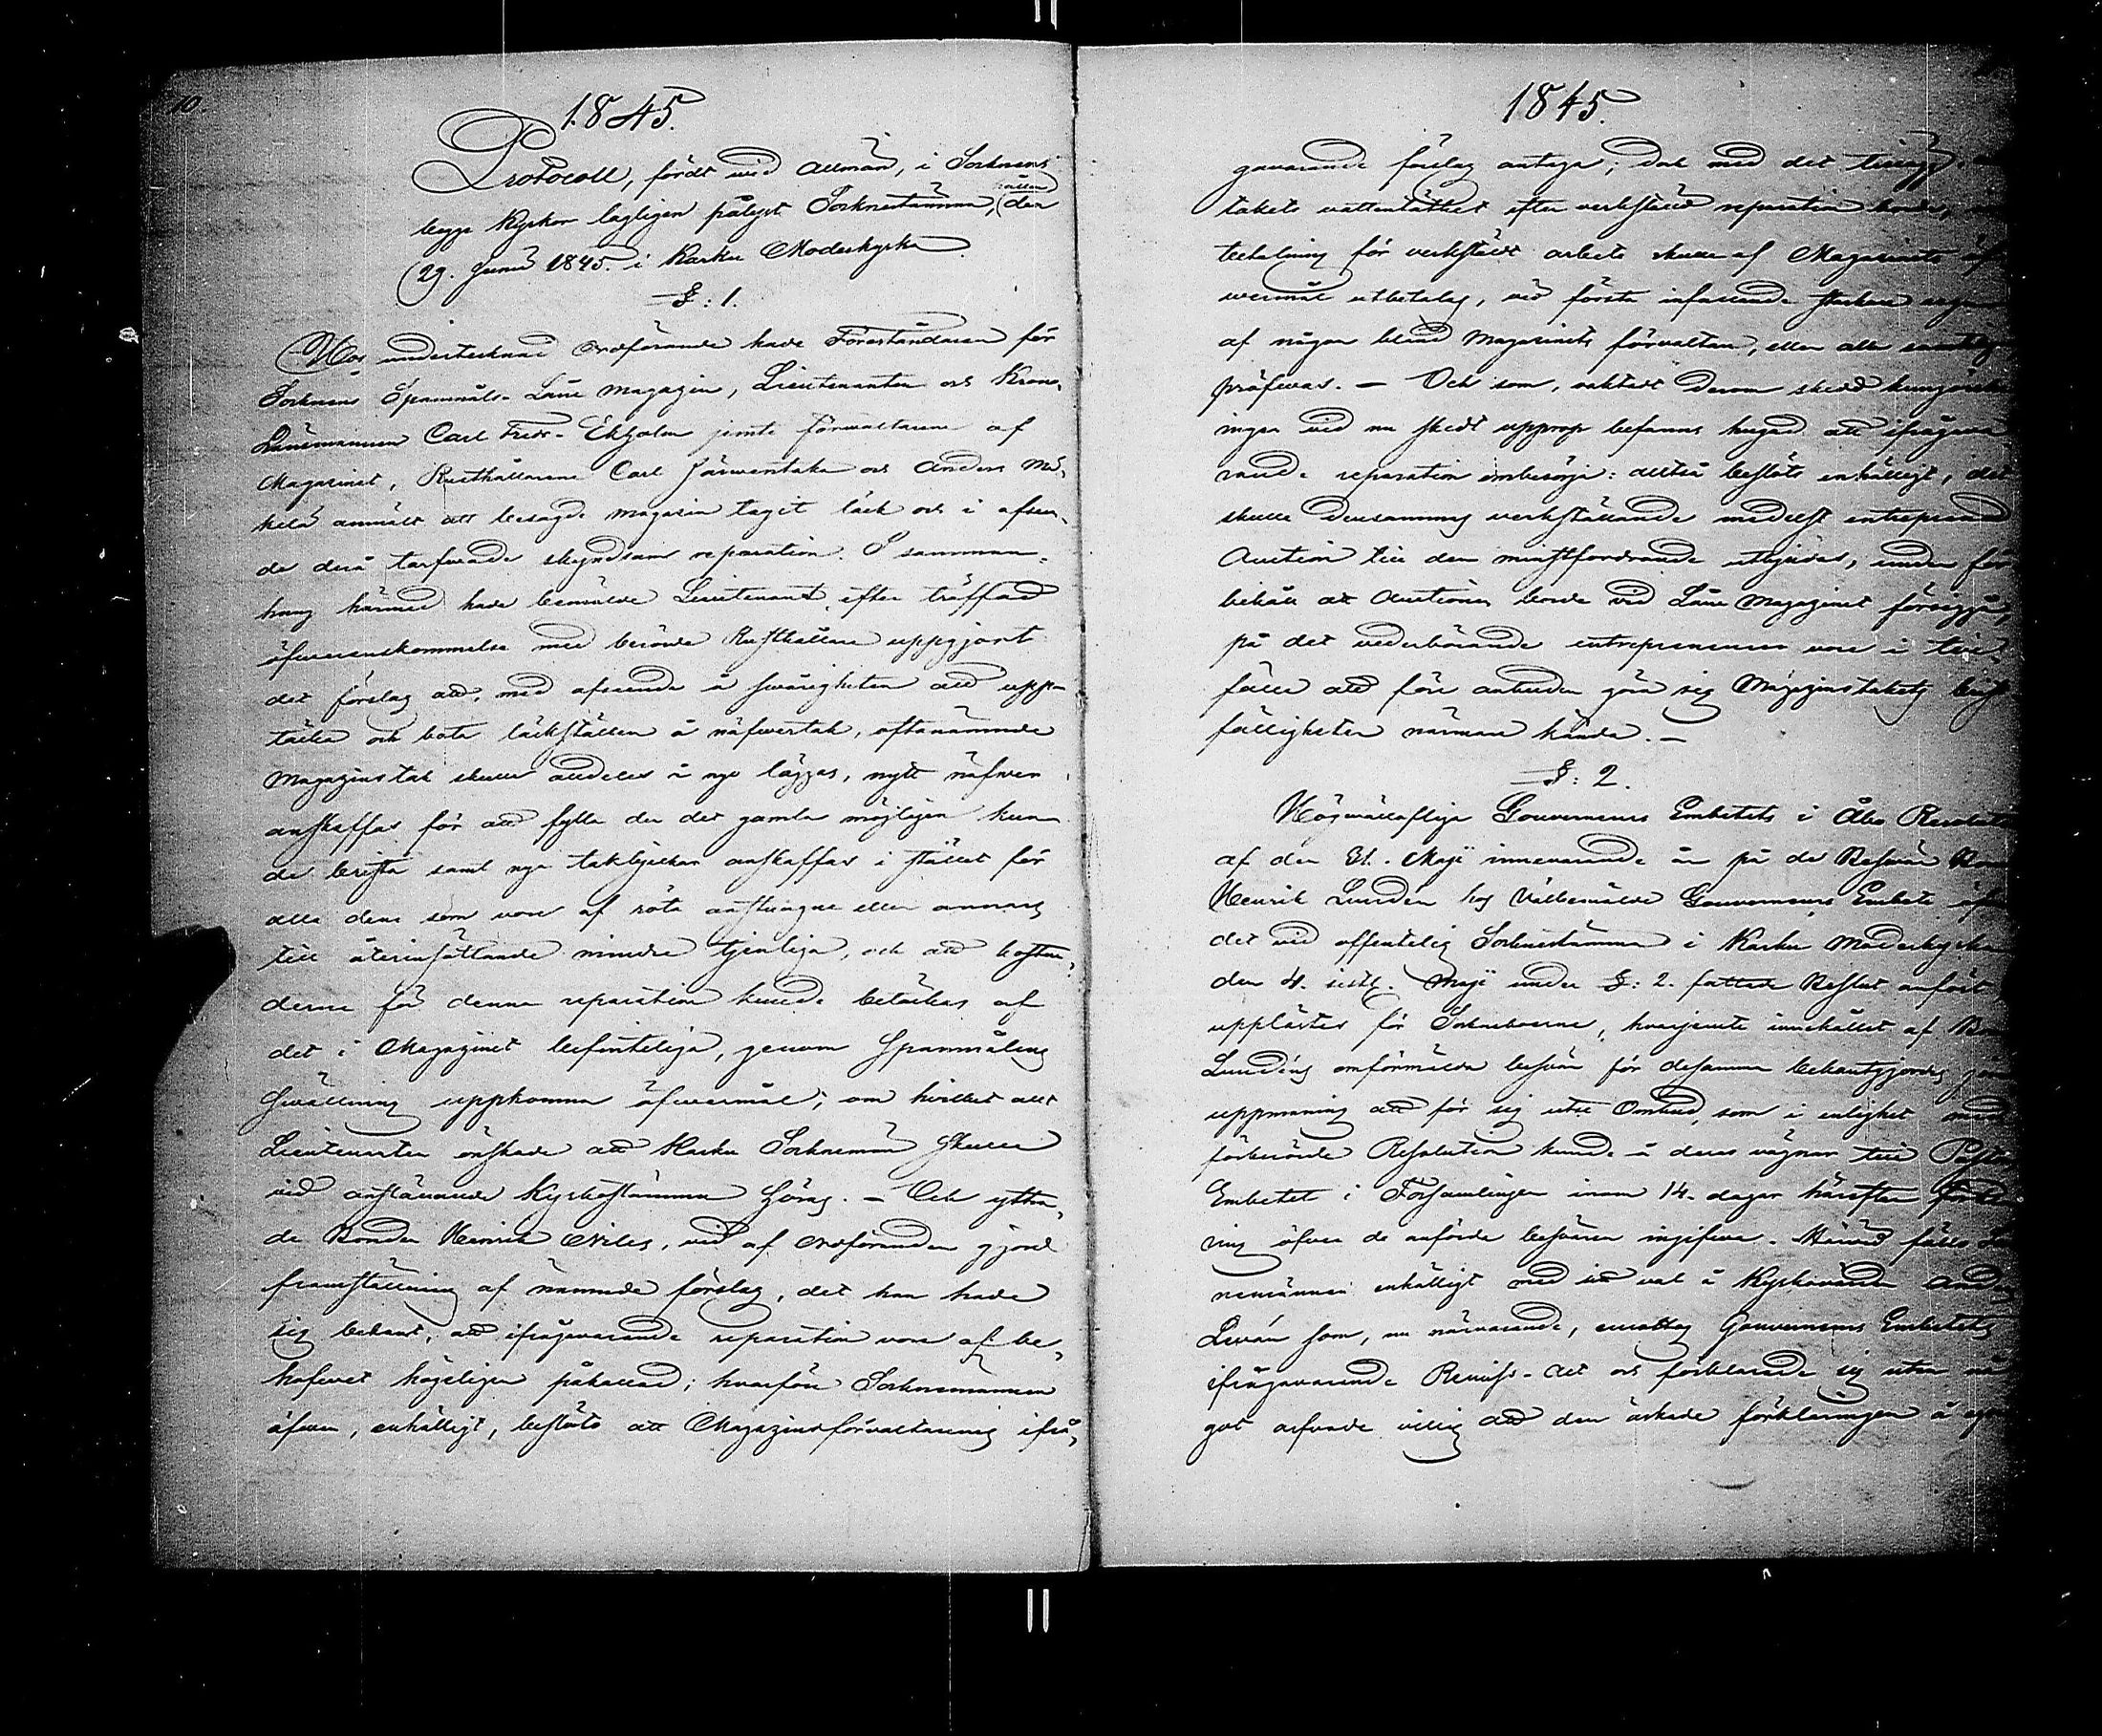 10
1845.
Protocoll, fördt wid Allmän, i Socknens
begge Kyrkor lagligen pålyst Socknestämma, hållen den
29. Junii 1845. i Karku Moderkyrka.
§: 1.
Hos undertecknad Ordförande hade Föreståndaren för
Socknens Spannmåls-Låne magazin, Lieutenanten och Krono-
Länsmannen Carl Fredr. Ekholm jemte förvaltarene af
Magazinet, Rusthållarene Carl Järwentaka och Anders Mi-
kelä anmält att besagde magazin tagit läck och i afseen-
de derå tarfvade skyndsam reparation. I samman-
hang härmed hade bemälde Lieutenant, efter träffad
öfverenskommelse med berörde Rusthållare uppgjort
det förslag att, med afseende å swårigheten att upp-
täcka och bota läckställen å näfvertak, oftanämnde
Magazins tak skulle alldeles å nyo läggas, nytt näfver
anskaffas för att fylla der det gamla möjligen kun-
de brista samt nya takstickor anskaffas i stället för
alla dem som vore af röta anstuckne eller annars
till återinsättande mindre tjenliga, och att kostna-
derne för denna reparation kunde betäckas af
det i Magazinet befinteliga, genom Spannmålens
Swällning uppkomna öfvermål; om hvilket allt
Lieutenanten önskade att Karku Socknemän skulle
vid anstäldande Kyrkostämma höras. – Och yttra-
de Bonden Henrik Niles, vid af Ordföranden gjord
framställning af nämnde förslag, det han hade
sig bekant, att ifrågavarande reparation vore af be-
hofvet högeligen påkallad; hvarföre Socknemännen
äfven, enhälligt, beslöto att Magazinsförvaltarenes ifrå-
1845.
gavarande förslag antaga; dock med det tillägg, att
takets vattentäthet efter verkställd reparation borde,
betalning för verkstäldt arbete skulle af Magazinets öf-
wermål utbetalas, vid första infallande starkare regn
af någon bland Magazinets förvaltare, eller alla samtlige
pröfvas. – Och som, oaktadt derom skedd kungörelse
ingen vid nu skedt upprop befanns hugad att ifrågava-
rande reparation ombesörja: alltså beslöts enhälligt, det
skulle densammas verkställande medelst entreprenad
Auction till den minstfordrande utbjudas, under för-
behåll att Auctionen borde vid Låne Magazinet försiggå,
på det vederbörande entrepreneurer vore i till-
fälle att före anbuden göra sig Magazinstakets brist-
fälligheter närmare kända. –
§: 2.
Högvällofliga Gouverneurs Embetets i Åbo Resolution
af den 31. Maji innevarande år på de Besvär Bonden
Henrik Lunden hos Välbemälde Gouverneurs Embete öfver
det vid offentelig Socknestämma i Karku Moderkyrka
den 4. sistl. Maji under §: 2. fattade Beslut anfört,
upplästes för Sockneboerne, hvarjemte innehållet af Bonden
Lundéns omförmälda besvär för desamma bekantgjordes
uppmaning att för sig utse Ombud, som i enlighet med
förberörde Resolution kunde å deras vägnar till Pastors
Embetet i Församlingen inom 14. dagar härefter förkla-
ring öfver de anförde besvären ingifva. Härvid föllo Sock-
nemännen enhälligt med sitt val å Kyrkovärden Anders
Levón som, nu närvarande, emottog Gouverneurs Embetets
ifrågavarande Remiss-Act och förklarade sig utan nå-
got arfvode villig att den äskade förklaringen å egna